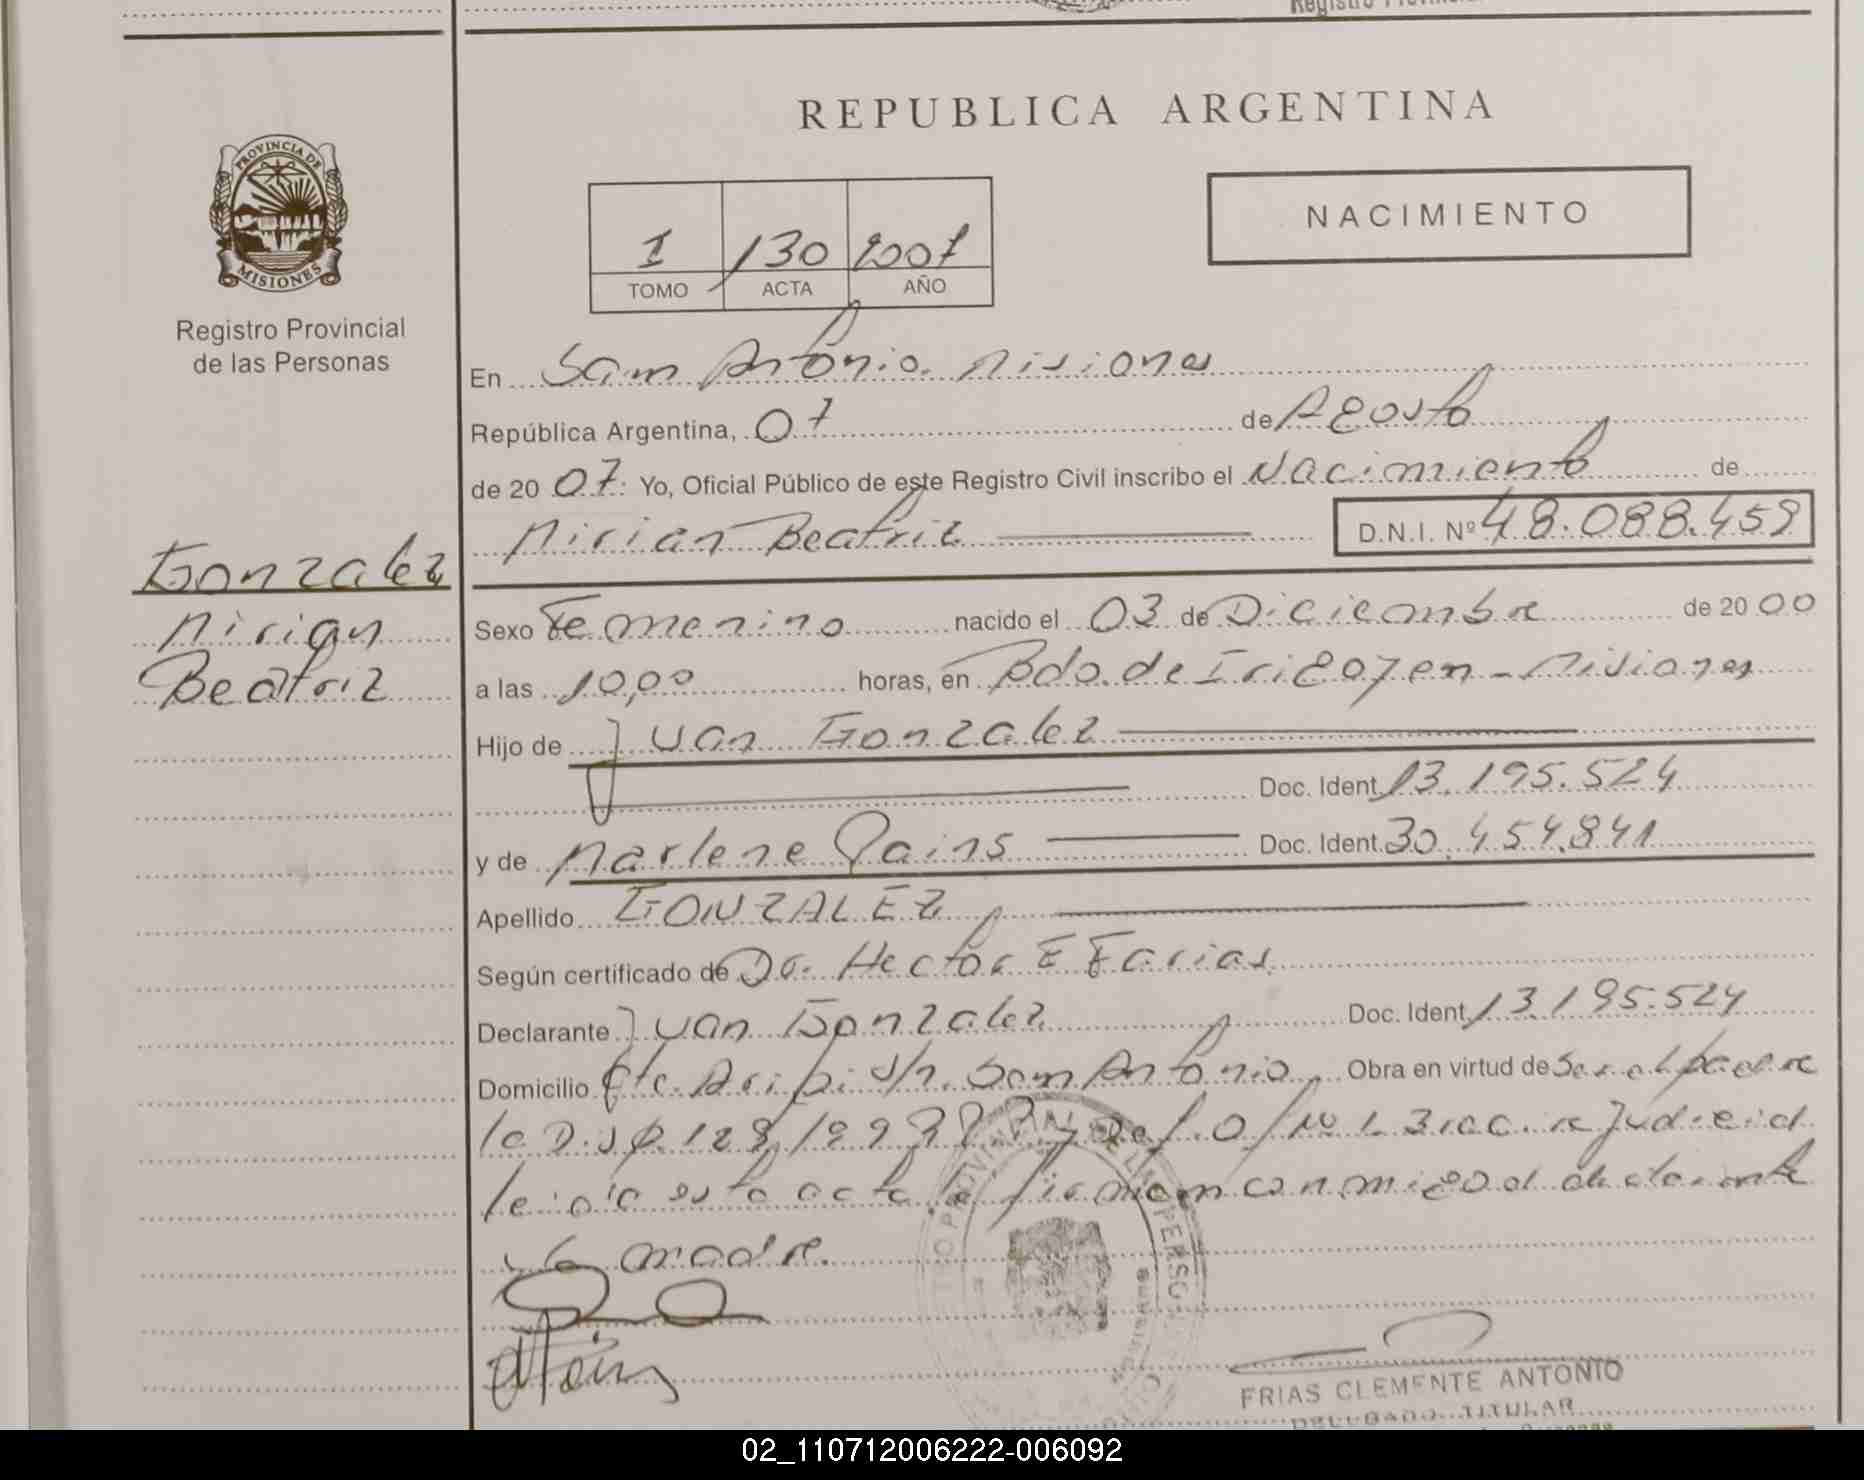 REPUBLICA ARGENTINA
NACIMIENTO
I 130 2007
TOMO ACTA AÑO
PROVINCIA DE
MISIONES
Registro Provincial
de las Personas
En San Antonio. Misiones
República Argentina, 07 de Agosto
de 20 07. Yo, Oficial Público de este Registro Civil inscribo el Nacimiento de
Mirian Beatriz D.N.I. Nº 48.088.459
Gonzalez
Mirian
Beatriz
Sexo Femenino nacido el 03 de Diciembre de 20 00
a las 10,00 horas, en Bdo. de Irigoyen - Misiones
Hijo de Juan Gonzalez
Doc. Ident. 13.195.524
y de Marlene Pains Doc. Ident. 30.454.841
Apellido GONZALEZ
Según certificado de Dr. Hector E Farias
Declarante Juan Gonzalez Doc. Ident. 13.195.524
Domicilio s/n. San Antonio Obra en virtud de Ser el padre
la Disp. 128
leida esta acta la firman conmigo el declarante
y la madre.
FRIAS CLEMENTE ANTONIO
DELEGADO TITULAR
02_110712006222-006092